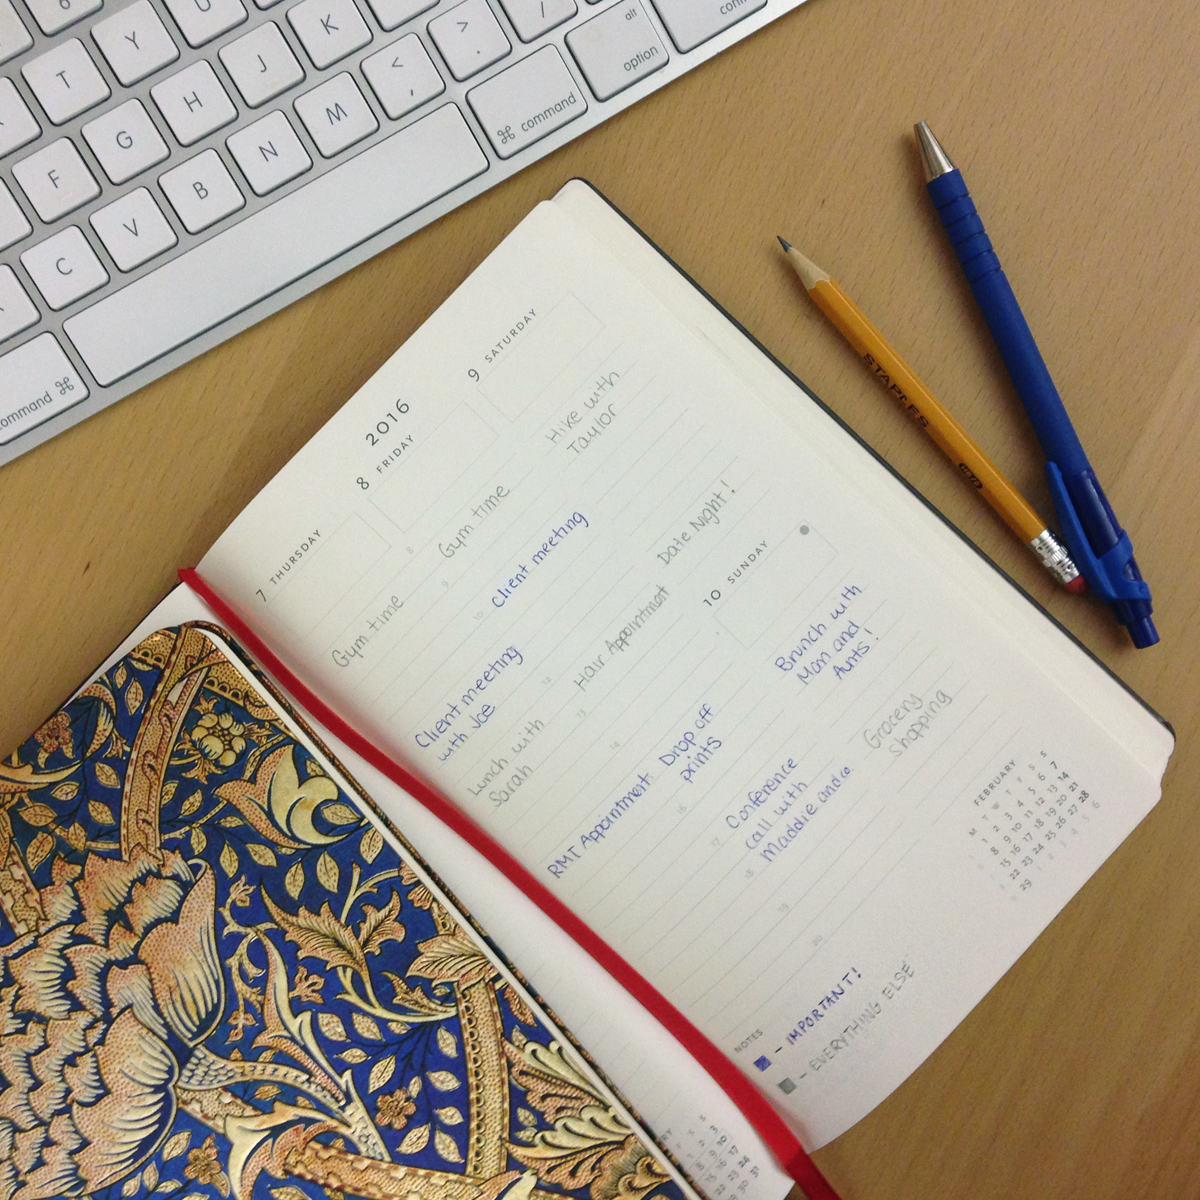 6
Y
U
T
K
J
H
G
F
M
N
B
V
C
<
,
>
.
/
alt
option
⌘ command
command ⌘
STAPLES
2016
7 THURSDAY
Gym time
Client meeting
with Joe
Lunch with
Sarah
RMT Appointment
8 FRIDAY
8
9
10
12
13
14
16
17
18
19
20
Gym time
Client meeting
Hair Appointment
Drop off
prints
Conference
call with
Maddie and co.
9 SATURDAY
Hike with
Taylor
Date Night!
10 SUNDAY
Brunch with
Mom and
Aunts!
Grocery
shopping
FEBRUARY
M T W T F S S
1 2 3 4 5 6 7
8 9 10 11 12 13 14
15 16 17 18 19 20 21
22 23 24 25 26 27 28
29
NOTES
- IMPORTANT!
- EVERYTHING ELSE